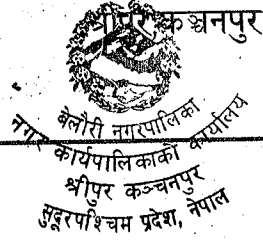 श्रीपुर कञ्चनपुर
बेलौरी नगरपालिका
नगर कार्यपालिकाको कार्यालय
श्रीपुर कञ्चनपुर
सुदूरपश्चिम प्रदेश, नेपाल